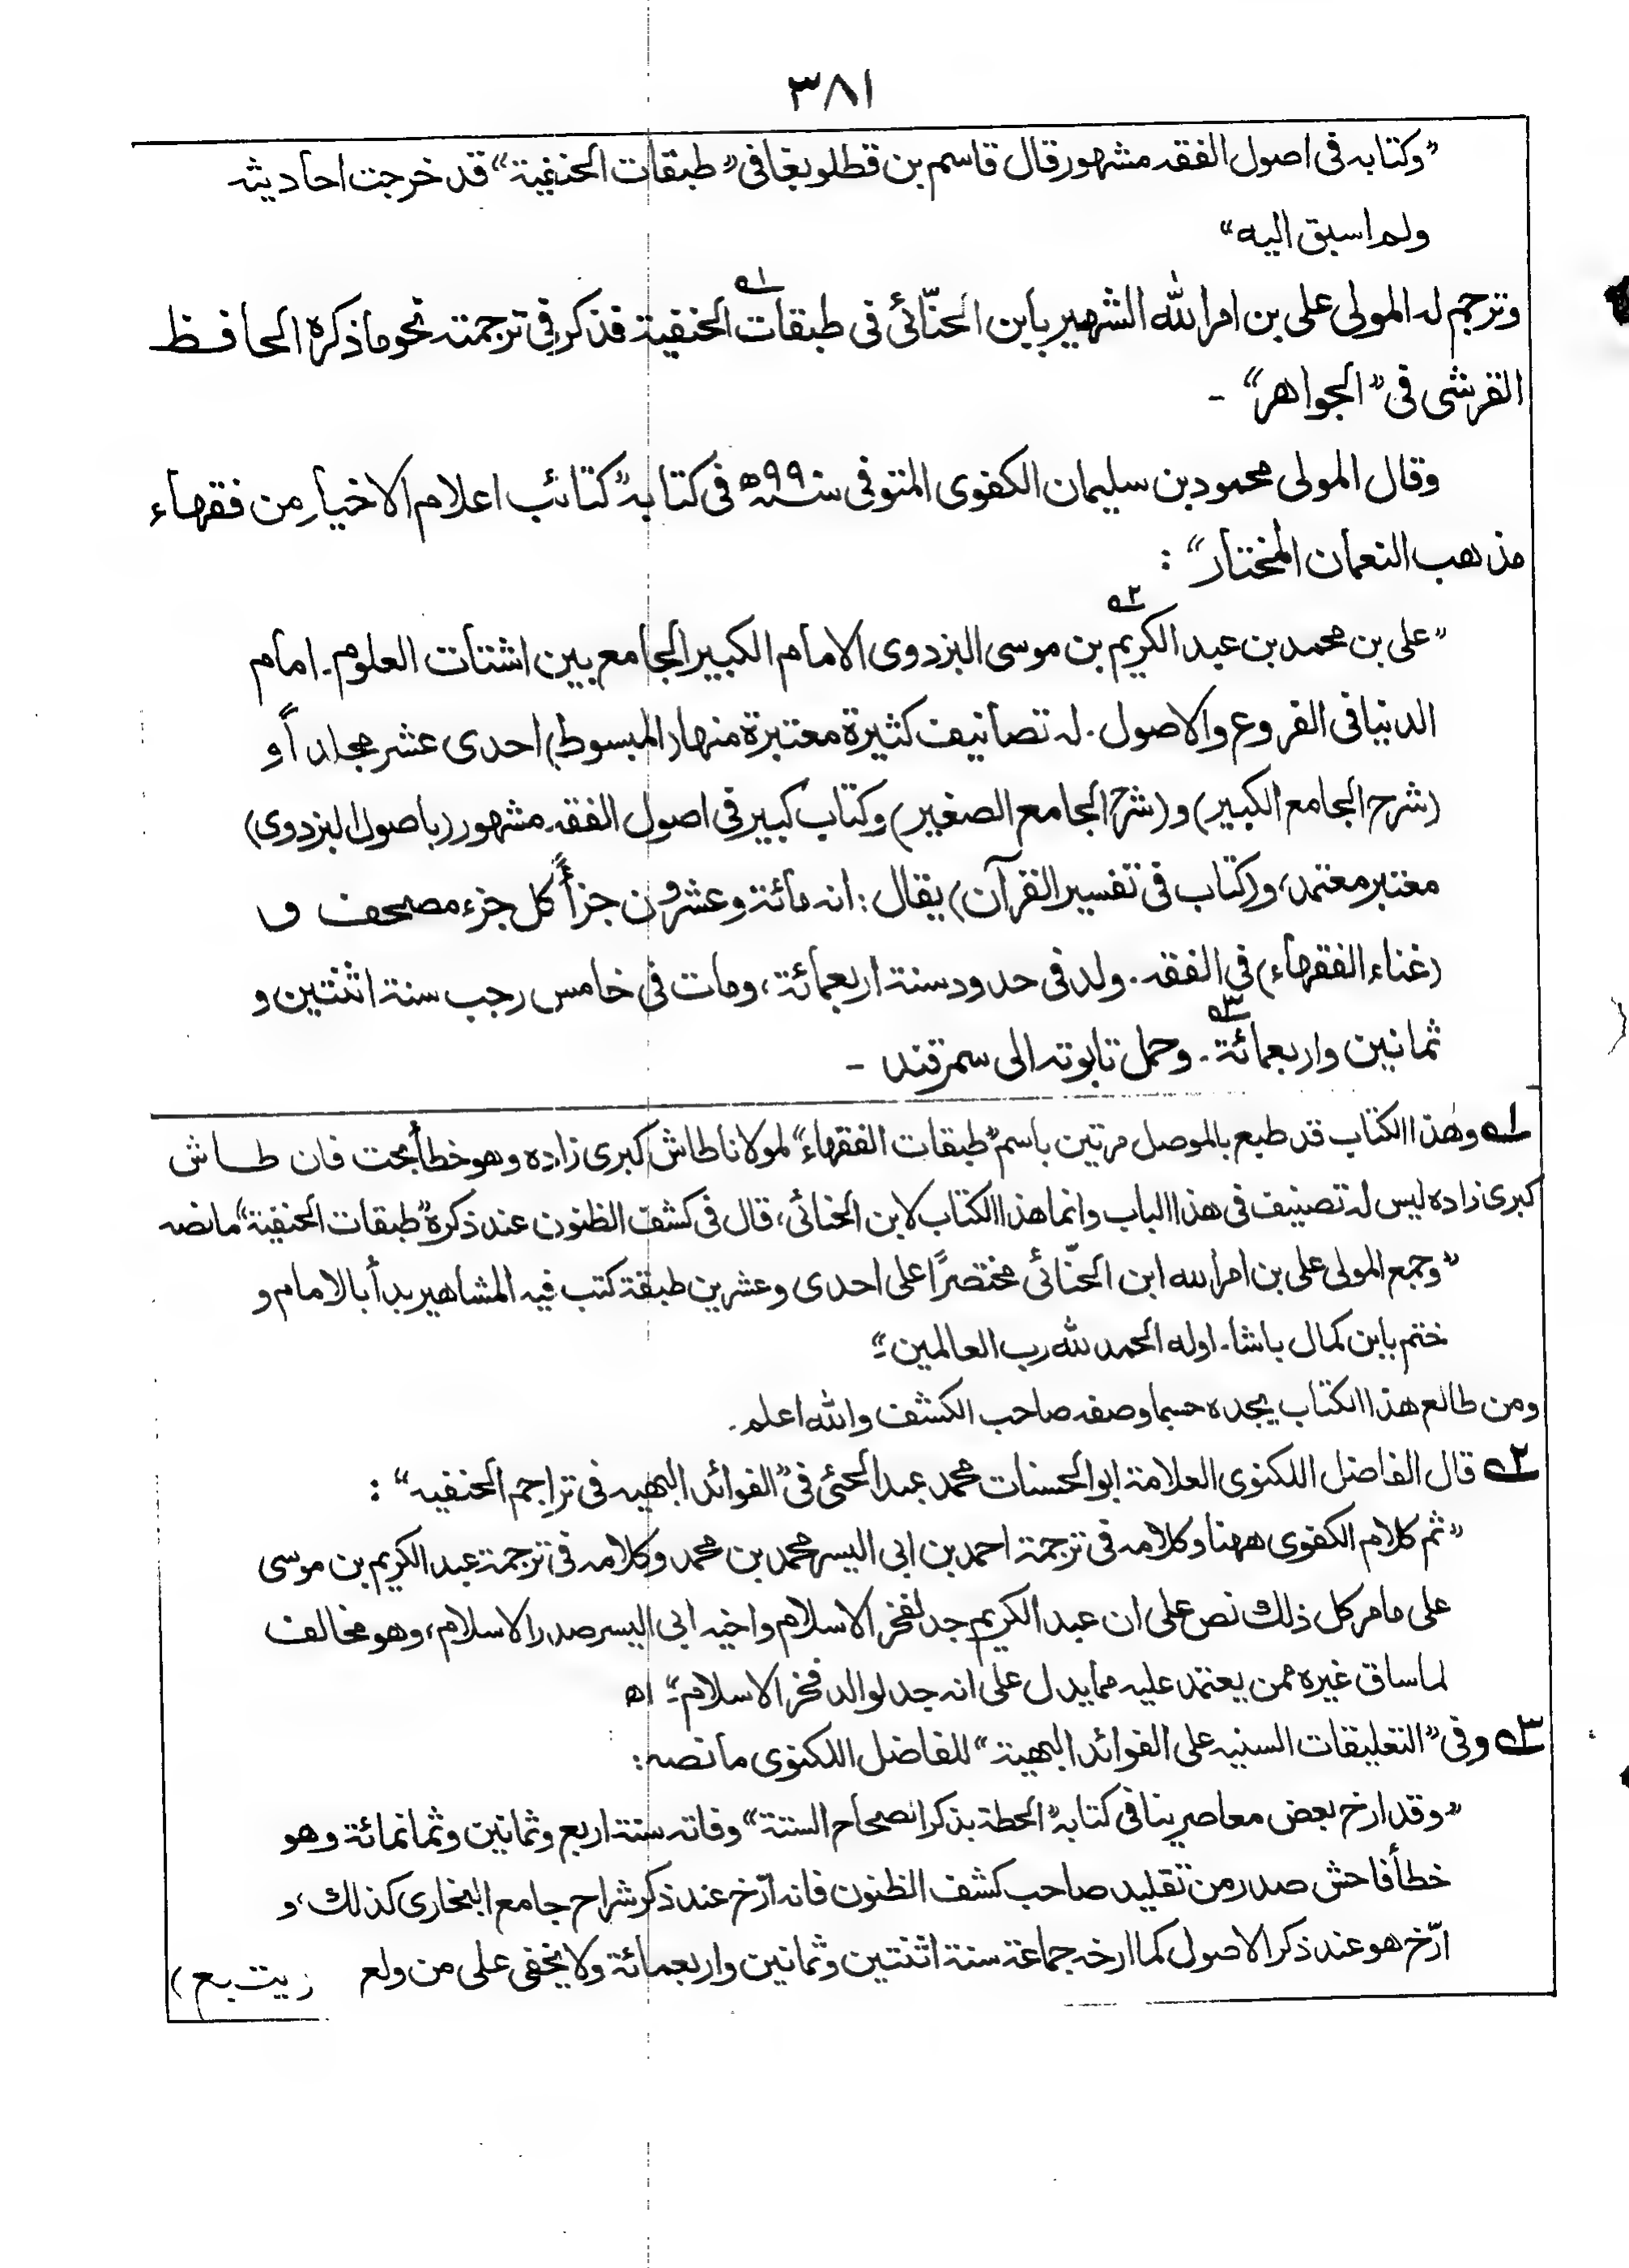 ٣٨١
”وكتابه فى اصول الفقه مشهور قال قاسم بن قطلوبغا فى ”طبقات الحنفية“ قد خرجت احاديثه
ولم اسبق اليه“
وترجم له المولى على بن امر الله الشهير بابن الحنّائى فى طبقات الحنفية ١ه فذكر فى ترجمته نحو ما ذكره الحافظ
القرشى فى ”الجواهر“ -
وقال المولى محمود بن سليمان الكفوى المتوفى سنة ٩٩٠ه فى كتابه ”كتائب اعلام الاخيار من فقهاء
مذهب النعمان المختار“ :
”على بن محمد بن عبد الكريم ٢ه بن موسى البزدوى الامام الكبير الجامع بين اشتات العلوم۔ امام
الدنيا فى الفروع والاصول۔ له تصانيف كثيرة معتبرة منها (المبسوط) احدى عشر مجلداً و
(شرح الجامع الكبير) و (شرح الجامع الصغير) وكتاب كبير فى اصول الفقه مشهور (باصول البزدوى)
معتبر معتمد، و (كتاب فى تفسير القرآن) يقال : انه مائة وعشرون جزأً كل جزء مصحف و
(غناء الفقهاء) فى الفقه۔ ولد فى حدود سنة اربعمائة، ومات فى خامس رجب سنة اثنتين و
ثمانين واربعمائة ٣ه۔ وحمل تابوته الى سمرقند -
١ه وهٰذا الكتاب قد طبع بالموصل مرتين باسم ”طبقات الفقهاء“ لمولانا طاش كبرى زاده وهو خطأ بحت فان طاش
كبرى زاده ليس له تصنيف فى هذا الباب وانما هذا الكتاب لابن الحنائى، قال فى كشف الظنون عند ذكره ”طبقات الحنفية“ ما نصه
”وجمع المولى على بن امر الله ابن الحنّائى مختصرًا على احدى وعشرين طبقة كتب فيه المشاهير بدأ بالامام و
ختم بابن كمال باشا۔ اوله الحمد لله رب العالمين“۔
ومن طالع هذا الكتاب يجده حسبما وصفه صاحب الكشف والله اعلم۔
٢ه قال الفاضل اللكنوى العلامة ابو الحسنات محمد عبد الحئى فى ”الفوائد البهيه فى تراجم الحنفيه“ :
”ثم كلام الكفوى ههنا وكلامه فى ترجمة احمد بن ابى اليسر محمد بن محمد وكلامه فى ترجمة عبد الكريم بن موسى
على ما مر كل ذلك نص على ان عبد الكريم جد لفخر الاسلام واخيه ابى اليسر صدر الاسلام، وهو مخالف
لما ساق غيره ممن يعتمد عليه مما يدل على انه جد لوالد فخر الاسلام“۔ اه
٣ه وفى ”التعليقات السنيه على الفوائد البهية“ للفاضل اللكنوى ما نصه :
”وقد ارخ بعض معاصرينا فى كتابه ”الحطة بذكر الصحاح الستة“ وفاته سنة اربع وثمانين وثمانمائة وهو
خطأ فاحش صدر من تقليد صاحب كشف الظنون فانه ارّخ عند ذكر شراح جامع البخارى كذلك، و
ارّخ هو عند ذكر الاصول كما ارخه جماعة سنة اثنتين وثمانين واربعمائة ولا يخفى على من ولع (يتبع)